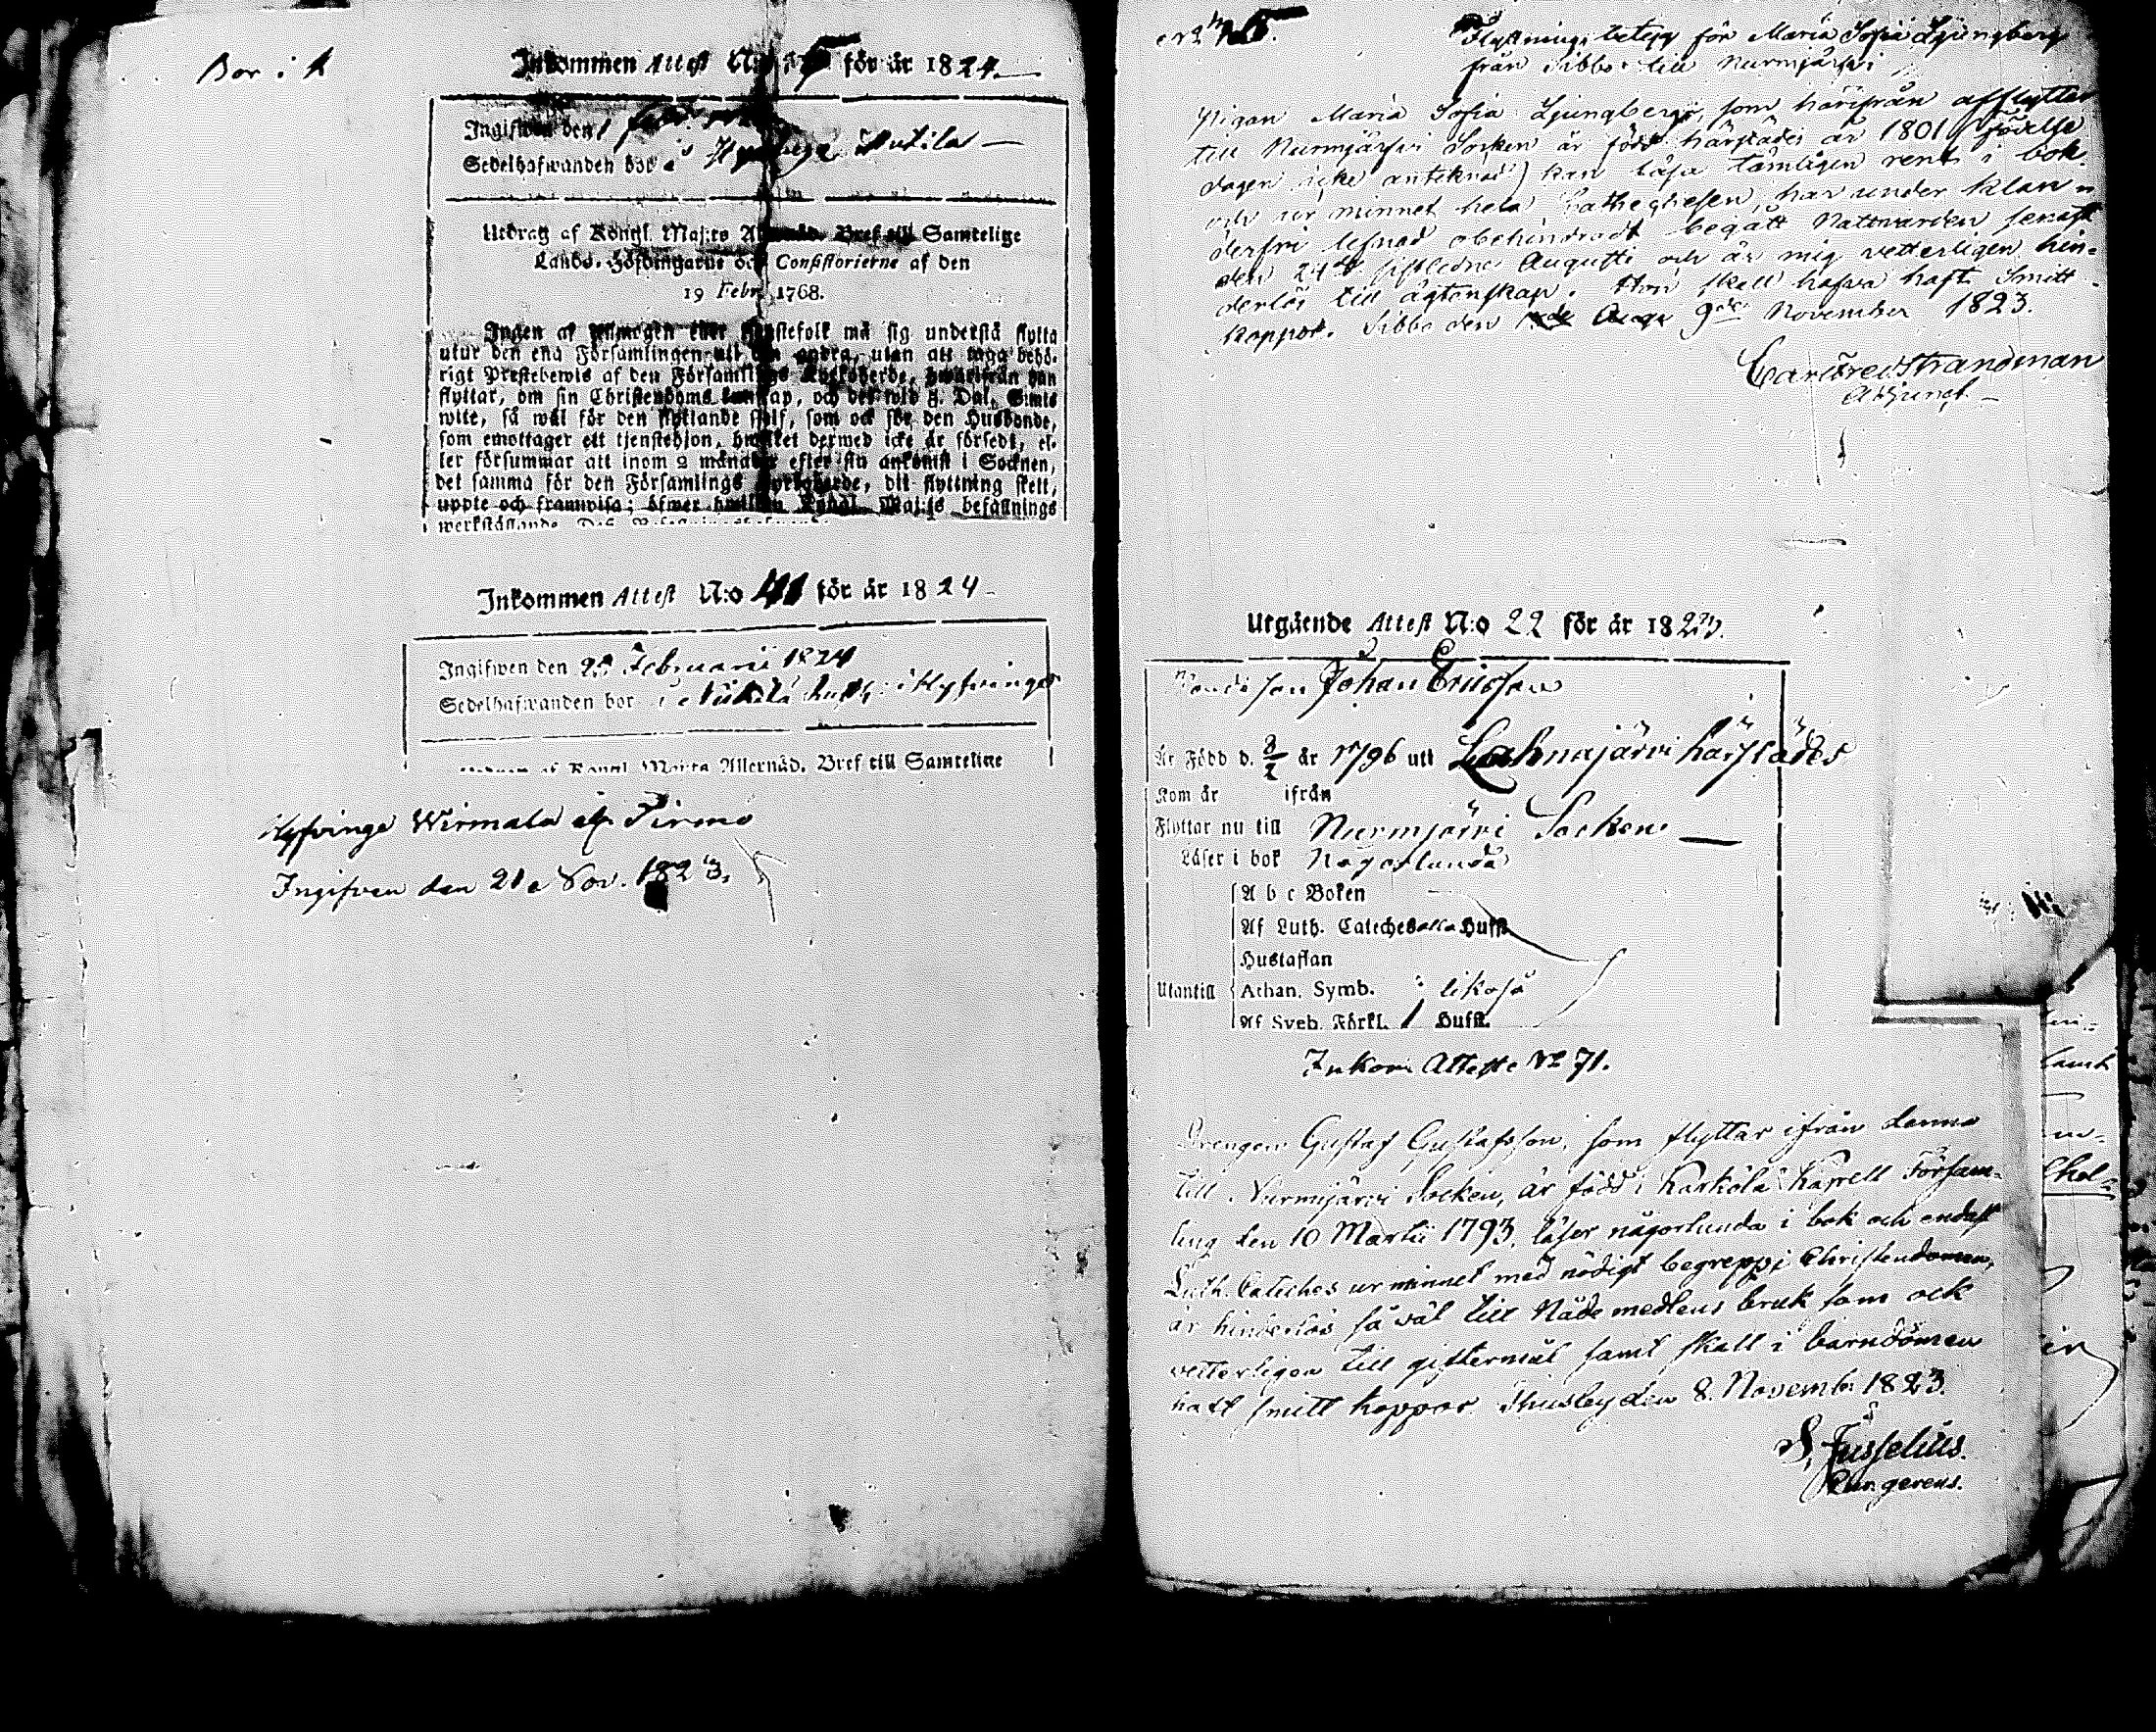 Bor i
Inkommen Attest N:o för år 1824.
Ingifwen den
Sedelhafwanden bor i
Utdrag af Kongl. Maj:ts Bref till Samtelige
Lands-Höfdingarne och Consistorierne af den
19 Febr. 1768.
Ingen af eller tjenstefolk må sig understå flytta
utur den ena Församlingen till den andra, utan att taga behö-
rigt Prestebewis af den Församlings Kyrkoherde, hwarifrån han
flyttar, om sin Christendoms kunskap, och det wid 8. Dal. Smts
wite, så wäl för den flyttande sjelf, som ock för den Husbonde,
som emottager ett tjenstehjon, hwilket dermed icke är försedt, el-
ler försummar att inom 2 månader efter sin ankomst i Socknen,
det samma för den Församlings Kyrkoherde, dit flyttning skett,
uppte och framwisa; öfwer hwilken Kongl. Maj:ts befallnings
werkställande
Inkommen Attest N:o 41 för år 1824
Ingifwen den Februarii 1824
Sedelhafwanden bor i i Hyfvinge
Kongl. Maj:ts Allernåd. Bref till Samtelige
Hyfvinge Wirmala
Ingifven den 21 Nov. 1823.
Flyttnings betyg för Maria Sofia Ljungberg
från Sibbo till Nurmijärfvi
Pigan Maria Sofia Ljungberg, som härifrån afflyttar
till Nurmijärfvi Socken är född härstädes år 1801 (födelse
dagen icke anteknad) kan läsa tämligen rent i bok
och ur minnet hela Cathechesen, har under klan-
derfri lefnad obehindradt begått Nattvarden senast
den 24de sistledne Augusti och är mig vetterligen hin-
derlös till ägtenskap. Hon skall hafva haft Smitt-
koppor. Sibbo den 9de November 1823.
Carl Fred Strandman
Adjunct
Utgående Attest N:o 22 för år 1823.
Johan Ericsson
Är Född d. 8/2 år 1796 uti Lahnajärvi härstädes
Kom år ifrån
Flyttar nu till Nurmijärvi Socken
Läser i bok Någorlunda
A b c Boken
Af Luth. Cateches alla Hufst.
Hustaflan
Utantill Athan. Symb. likaså
Af Sveb. Förkl. 1 Hufst.
Inkom Atteste No 71.
Drengen Gustaf Gustafsson, som flyttar ifrån denna
till Nurmijärvi Socken, är född i Kärkölä Kapell Försam-
ling den 10 Martii 1793, läser någorlunda i bok och endast
Luth. Cateches ur minnet med nödigt begrepp i Christendomen,
är hinderlös så väl till Nådemedlens bruk som ock
vetterligen till giftermål samt skall i barndomen
haft smitt koppor. Thusby den 8. Novemb. 1823.